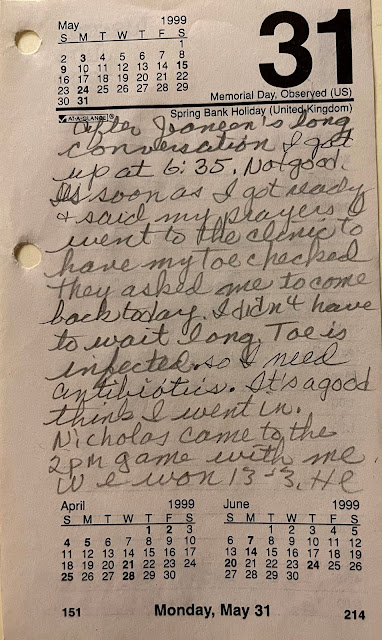 May 1999
S M T W T F S
1
2 3 4 5 6 7 8
9 10 11 12 13 14 15
16 17 18 19 20 21 22
23 24 25 26 27 28 29
30 31
31
Memorial Day, Observed (US)
AT-A-GLANCE®
Spring Bank Holiday (United Kingdom)
After long
conversation I got
up at 6:35. Not good.
As soon as I got ready
& said my prayers I
went to the clinic to
have my toe checked
They asked me to come
back today. I didn't have
to wait long. Toe is
infected. so I need
antibiotics. It's a good
think I went in.
Nicholas came to the
2 pm game with me
We won 13-3. He
April 1999
S M T W T F S
1 2 3
4 5 6 7 8 9 10
11 12 13 14 15 16 17
18 19 20 21 22 23 24
25 26 27 28 29 30
June 1999
S M T W T F S
1 2 3 4 5
6 7 8 9 10 11 12
13 14 15 16 17 18 19
20 21 22 23 24 25 26
27 28 29 30
151 Monday, May 31 214